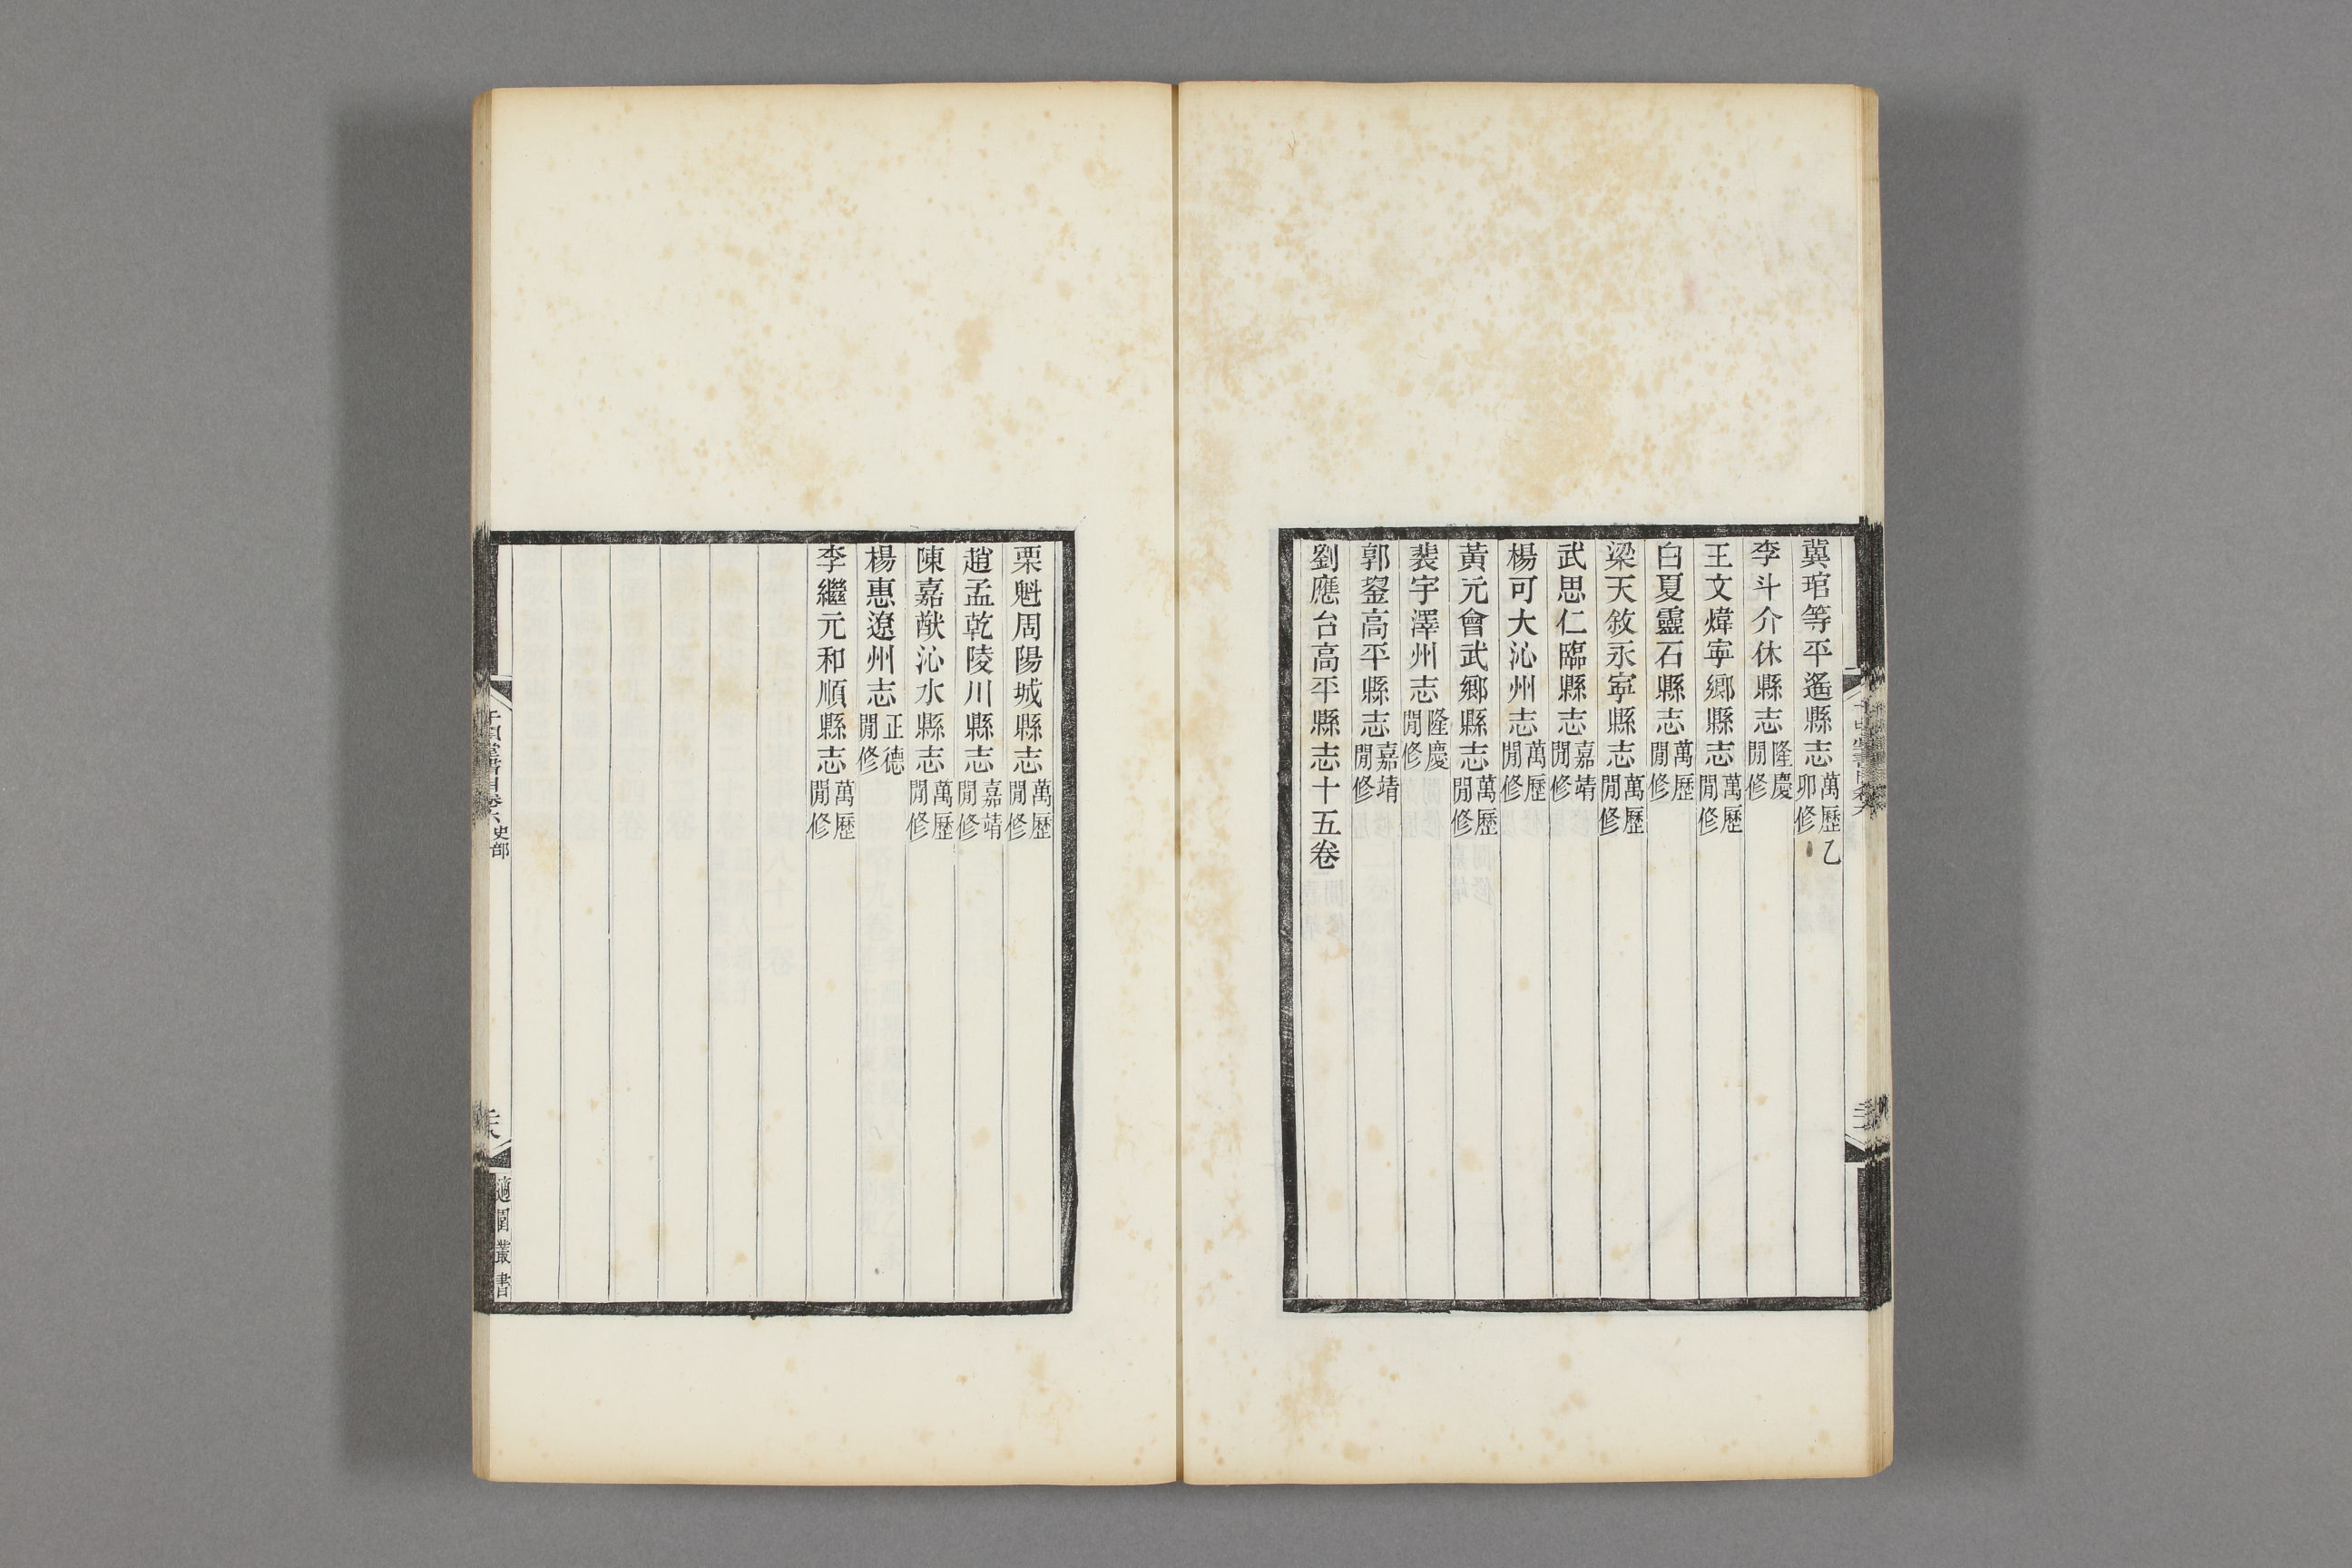 冀琯等平遙縣志萬歷乙卯修
李斗介休縣志隆慶閒修
王文煒寧鄉縣志萬歷閒修
白夏靈石縣志萬歷閒修
梁天敘永寧縣志萬歷閒修
武思仁臨縣志嘉靖閒修
楊可大沁州志萬歷閒修
黃元會武鄉縣志萬歷閒修
裴宇澤州志隆慶閒修
郭鋆高平縣志嘉靖閒修
劉應台高平縣志十五卷
栗魁周陽城縣志萬歷閒修
趙孟乾陵川縣志嘉靖閒修
陳嘉猷沁水縣志萬歷閒修
楊惠遼州志正德閒修
李繼元和順縣志萬歷閒修
千頃堂書目卷六史部
適園叢書